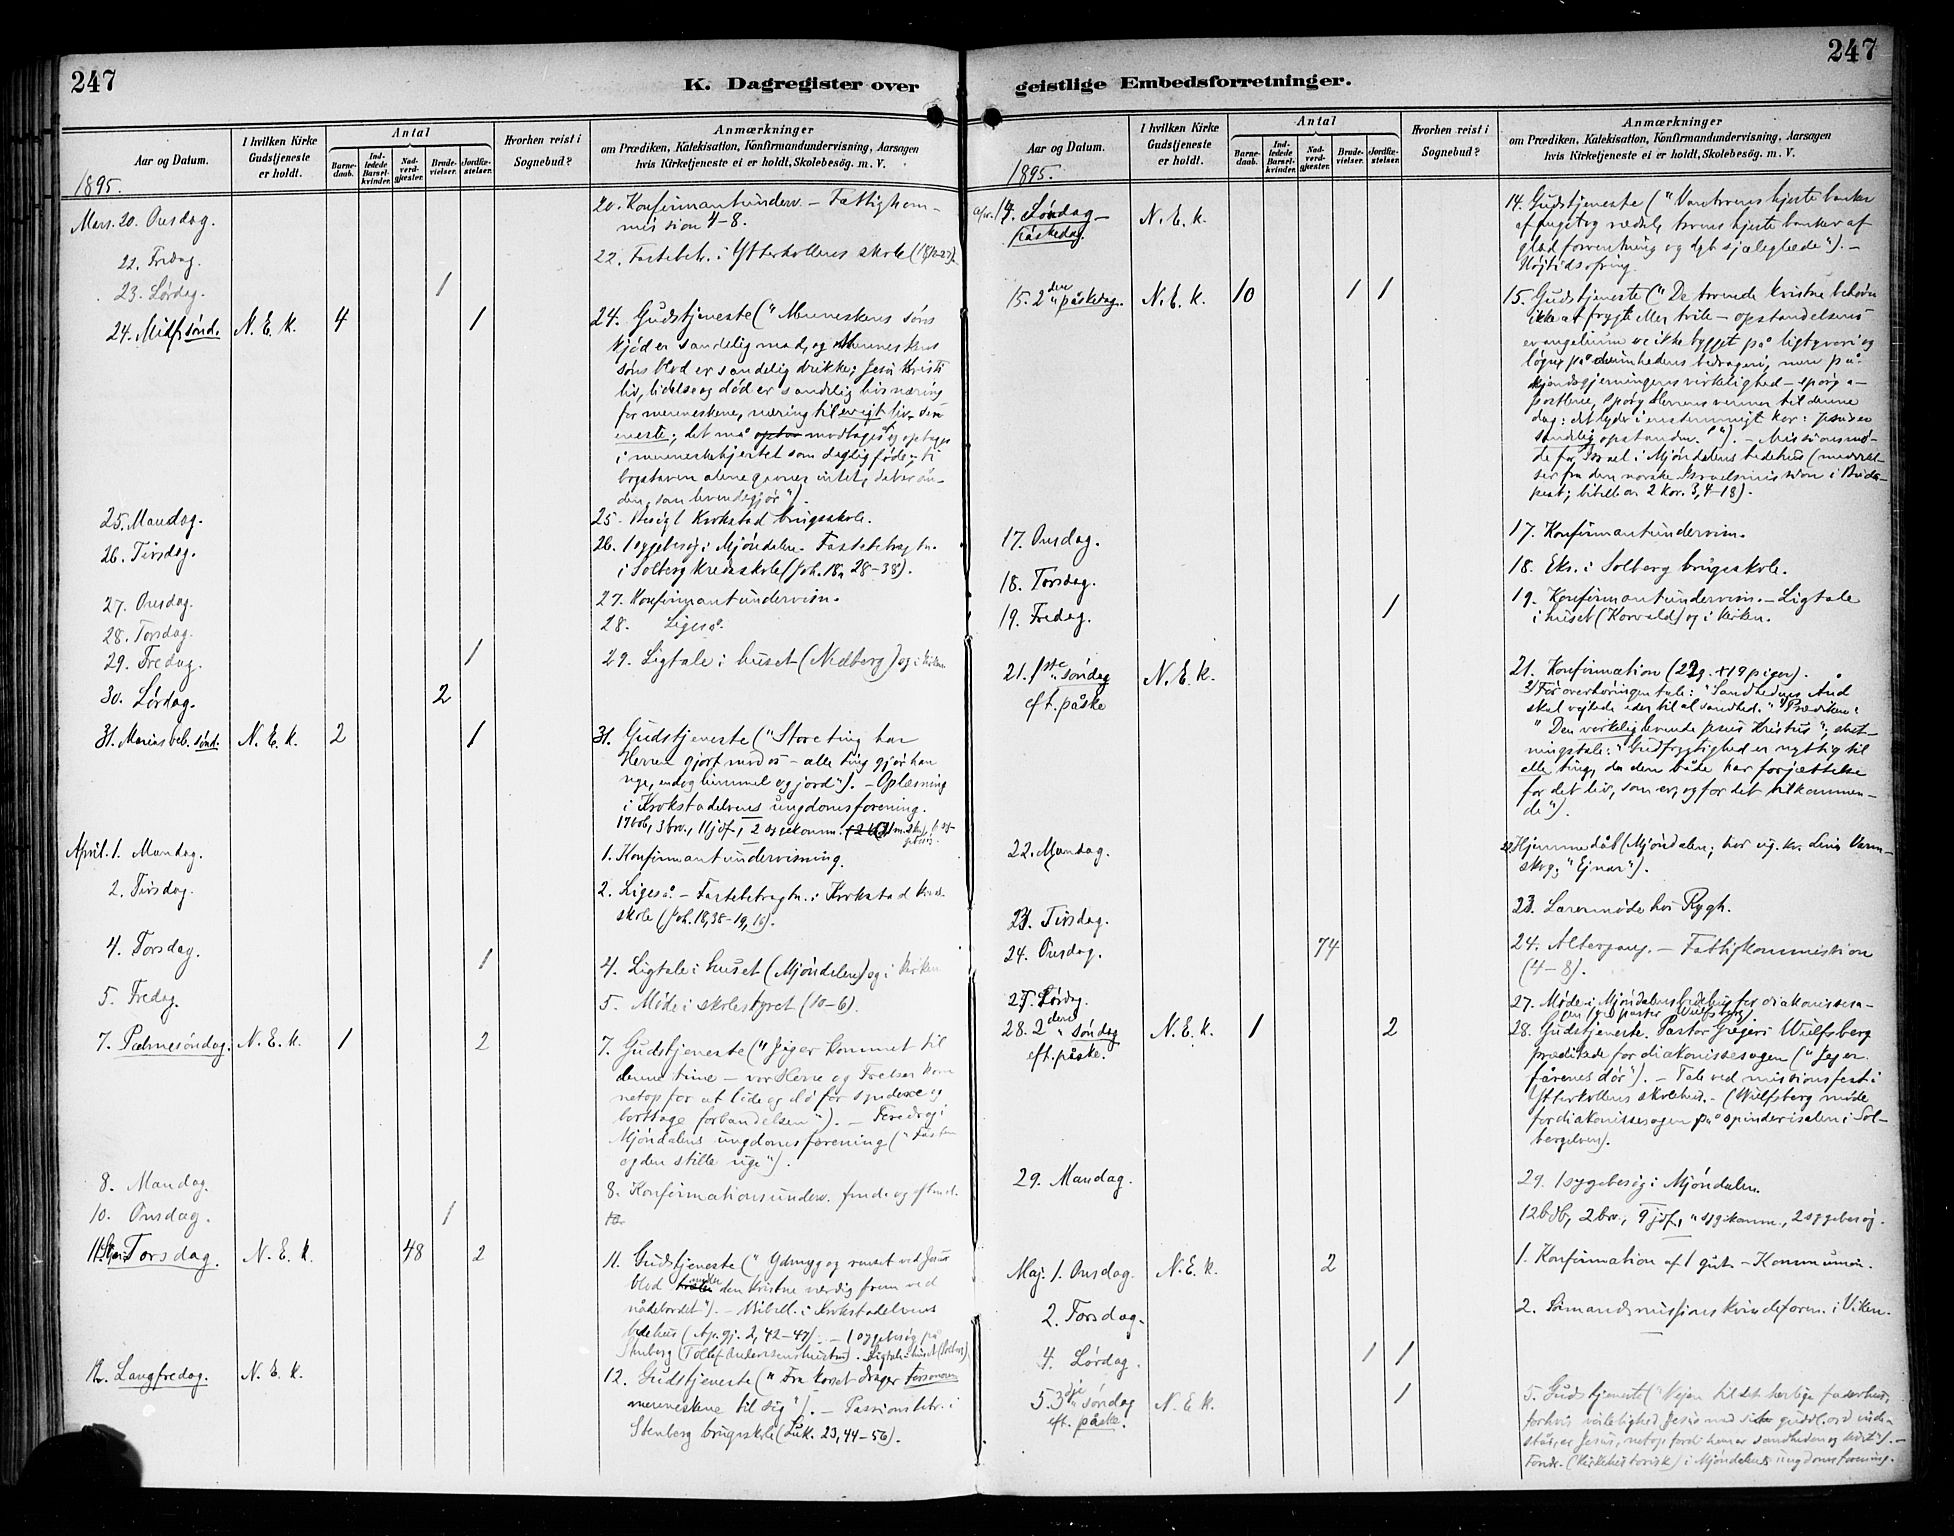 247
K. Dagregister over
Aar og Datum.
I hvilken Kirke Gudstjeneste er holdt.
Antal
Barnedaab.
Indledede Barselkvinder.
Nadverdgjester.
Brudevielser.
Jordfæstelser.
Hvorhen reist i Sognebud?
Anmærkninger
om Prædiken, Katekisation, Konfirmandundervisning, Aarsagen
hvis Kirketjeneste ei er holdt, Skolebesög. m. V.
1895.
Mars. 20. Onsdag.
20. Konfirmantunderv. – Fattigkom-
mission 4–8.
22. Fredag.
22. Fastebetr. i Ytterkollens skole
23. Lørdag. 1
24. Midf. sønd. N. E. k. 4 1
24. Gudstjeneste („Menneskens søns
kjød er sandelig mad, og Menneskens
søns blod er sandelig drikke; Jesu Kristi
liv, lidelse og død er sandelig livsnæring
for menneskene, næring til evigt liv, den
eneste; det må modtages og optages
i menneskehjertet som daglig føde, ti
bogstaven alene gavner intet, det er ån-
den, som levendegjør").
25. Mandag.
25. Besøgt Krokstad brugsskole.
26. Tirsdag.
26. 1 sygebesøg i Mjøndalen. Fastebetragtn.
i Solberg kredsskole (Joh. 18, 28–38).
27. Onsdag.
27. Konfirmantundervisn.
28. Torsdag.
28. Ligeså.
29. Fredag. 1
29. Ligtale i huset (Nedberg) og i kirken
30. Lørdag. 2
31. Marias beb. sønd. N. E. k. 2 1
31. Gudstjeneste („Store ting har
Herren gjort mod os – alle ting gjør han
nye, endog himmel og jord"). – Oplæsning
i Krokstadelvens ungdomsforening.
17 bdb, 3 brv., 11 jdf., 2 sygekomm.
April. 1. Mandag.
1. Konfirmantundervisning.
2. Tirsdag.
2. Ligeså. – Fastebetragtn. i Krokstad kreds-
skole (Joh. 18, 38–19, 16).
4. Torsdag. 1
4. Ligtale i huset (Mjøndalen) og i kirken
5. Fredag.
5. Møde i skolestyret (10–6).
7. Palmesøndag. N. E. k. 1 2
7. Gudstjeneste („Jeg er kommet til
denne time – vor Herre og Frelser kom
netop for at lide og dø for syndere og
borttage forbandelsen"). – Foredrag i
Mjøndalens ungdomsforening („Fasten
og den stille uge").
8. Mandag.
8. Konfirmationsunderv. formd. og eftmd.
10. Onsdag. 1
11. Skjærtorsdag. N. E. k. 48 2
11. Gudstjeneste („Ydmyg og renset ved Jesu
blod træder den kristne værdig frem ved
nådebordet"). – Bibell. i Krokstadelvens
bedehus (Ap. gj. 2, 42–47). – 1 sygebesøg på
Stenberg
12. Langfredag. N. E. k.
12. Gudstjeneste („Fra korset drager Forsoneren
menneskene til sig"). – Passionsbetr. i
Stenberg brugsskole (Luk. 23, 44–56).
247
geistlige Embedsforretninger.
Aar og Datum.
I hvilken Kirke Gudstjeneste er holdt.
Antal
Barnedaab.
Indledede Barselkvinder.
Nadverdgjester.
Brudevielser.
Jordfæstelser.
Hvorhen reist i Sognebud?
Anmærkninger
om Prædiken, Katekisation, Konfirmandundervisning, Aarsagen
hvis Kirketjeneste ei er holdt, Skolebesög. m. V.
1895.
Apr. 14. Søndag – påskedag. N. E. k.
14. Gudstjeneste („Vantroens hjerte banker
af angst og rædsel, troens hjerte banker af
glad forventning og dyb sjæleglæde"). –
Højtidsofring.
15. 2den påskedag. N. E. k. 10 1 1
15. Gudstjeneste („De troende kristne behøver
ikke at frygte eller tvile – opstandelsens
evangelium er ikke bygget på
løgn, på bedrageri, men på
kjendsgjerningens virkelighed – spørg a-
postlene, spørg Herrens venner til denne
dag: det lyder i enstemmigt kor: Jesus er
sandelig opstanden."). – Missionsmø-
de for Israel i Mjøndalens bedehus (meddelel-
ser fra den norske Israelsmission i Buda-
pest; bibell. ov. 2 kor. 3, 4–18).
17. Onsdag.
17. Konfirmantundervisn.
18. Torsdag.
18. Eks. i Solberg brugsskole.
19. Fredag. 1
19. Konfirmantundervisn. – Ligtale
i huset (Korvald) og i kirken.
21. 1ste søndag eft. påske N. E. k.
21. Konfirmation (22 g. + 19 piger).
Før overhøringen tale: „Sandhedens Ånd
skal vejlede eder til al sandhed." Prædiken:
„Den virkelig levende Jesus Kristus"; slut-
ningstale: „Gudfrygtighed er nyttig til
alle ting, da den både har forjættelse
for det liv, som er, og for det tilkommen-
de").
22. Mandag.
22. Hjemmedåb (Mjøndalen;
„Ejnar").
23. Tirsdag.
23. Lærermøde hos Rygh.
24. Onsdag. 74
24. Altergang. – Fattigkommission
(4–8).
27. Lørdag.
27. Møde i Mjøndalens bedehus for diakonissesa-
gen (ved pastor Wulfsberg).
28. 2den søndag eft. påske. N. E. k. 1 2
28. Gudstjeneste. Pastor Gregers Wulfsberg
prædikede for diakonissesagen („Jeg er
fårenes dør"). – Tale ved missionsfest i
Ytterkollens skolehus. – (Wulfsberg møde
for diakonissesagen på spinderisalen i Sol-
bergelven).
29. Mandag.
29. 1 sygebesøg i Mjøndalen.
12 bdb, 2 brv., 9 jdf., „ sygekomm., 2 sygebesøg.
Maj. 1. Onsdag. N. E. k. 2
1. Konfirmation af 1 gut. – Kommunion.
2. Torsdag.
2. Sømandsmissionskvindeforen. i Viken.
4. Lørdag. 1 1
5. 3dje søndag eft. påske. N. E. k. 1
5. Gudstjeneste („Vejen til det herlige faderhus,
Jesus med sit guddl. ord
er Jesus, netop fordi han er sandheden og livet"). –
Foredr. (kirkehistorisk) i Mjøndalens ungdomsforening.